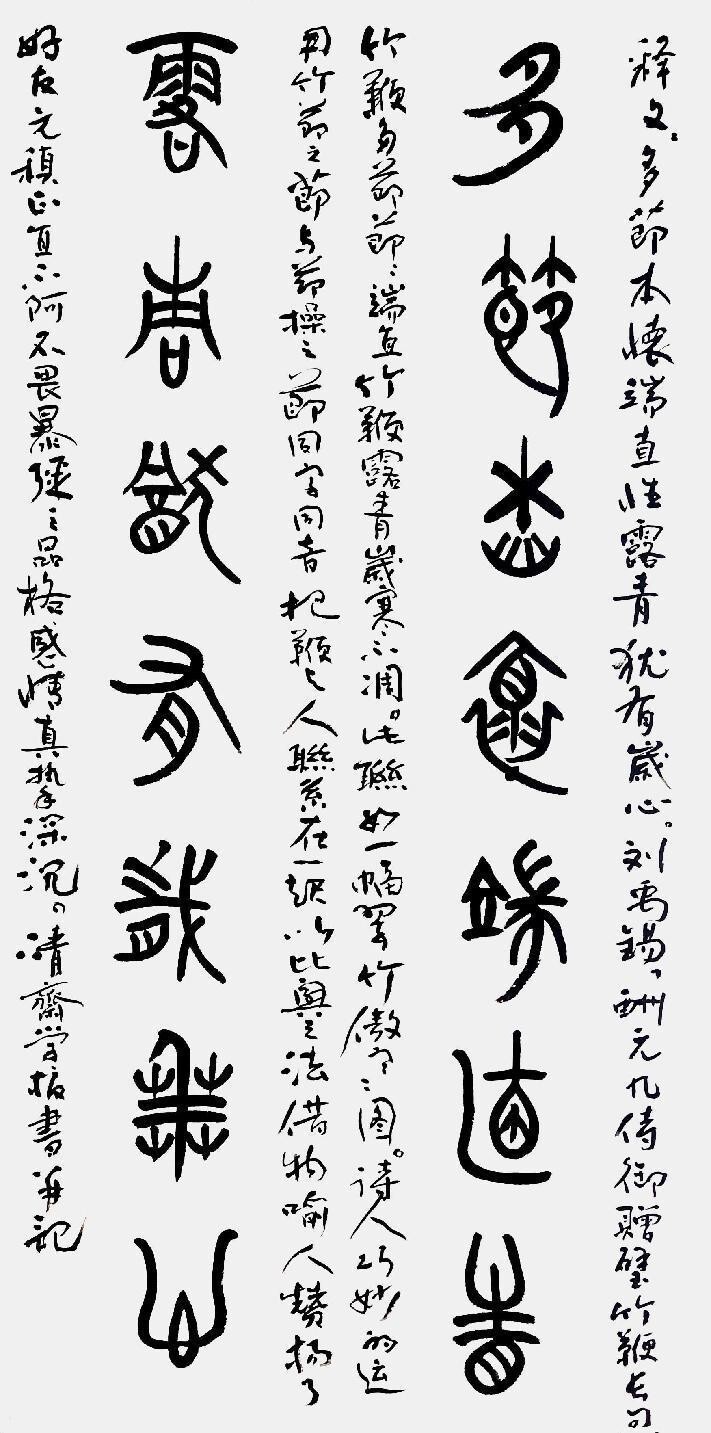 释文：多節本懷端直性露青犹有歲心。刘禹錫，酬元九侍御贈璧竹鞭长句.
多節本懷端直性
竹鞭多節節〻端直竹鞭露青歲寒不凋。此聯如一幅翠竹傲寒之图。诗人巧妙的运
用竹節之節与節操之節同字同音把鞭与人聯系在一起以比興之法借物喻人赞揚了
露青猶有歲寒心
好友元稹正直不阿不畏暴强之品格感情真挚深沉。清齋学書并記